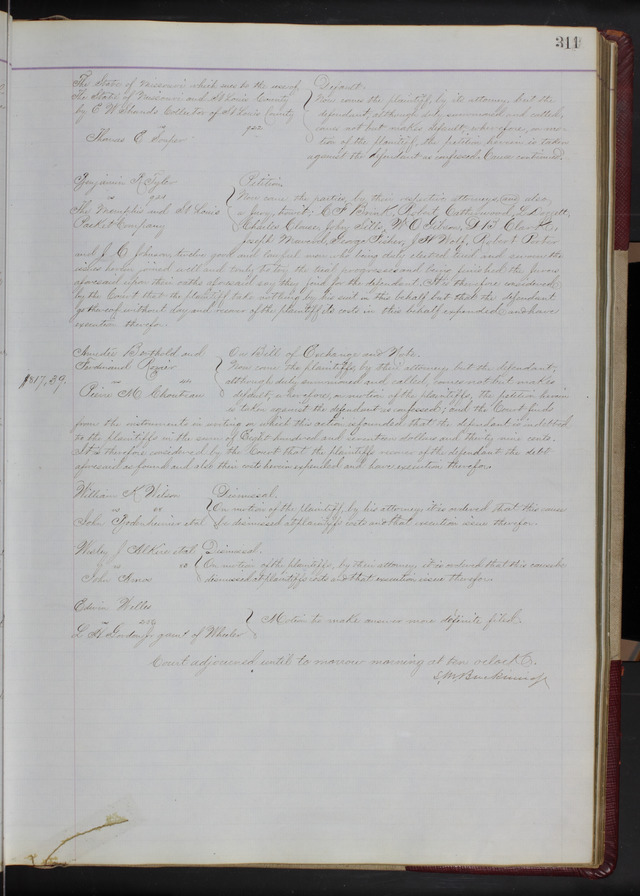 311
The State of Missouri which sues to the use of Default.
the State of Missouri and St Louis County Now comes the plaintiff, by its attorney, but the
by C W Collector of St Louis County defendant although duly summoned and called,
vs comes not but makes default, wherefore, on mo-
Thomas C tion of the plaintiff, the petition herein is taken
against the defendant as confessed. Cause continued.
Benjamin R Tyler Petition.
vs Now come the parties, by their respective attorneys, and also
The Memphis and St Louis a jury, towit;
Packet Company Charles W O D B
Joseph George Fisher, J H Wolf, Robert
and J. C. Johnson, twelve good and lawful men who being duly elected, tried and sworn the
issues herein joined well and truly to try the trial progresses and being finished the jurors
aforesaid upon their oaths aforesaid say they find for the defendant. It is therefore considered
by the Court that the plaintiff take nothing by his suit in this behalf but that the defendant
go thereof without day and recover of the plaintiff its costs in this behalf expended and have
execution therefor.
Amedee Berthold and On Bill of Exchange and Note.
Ferdinand Rozier Now come the plaintiffs, by their attorneys but the defendant,
$817,39. vs although duly summoned and called, comes not but makes
Pierre M Chouteau default, wherefore, on motion of the plaintiffs, the petition herein
is taken against the defendant as confessed; and the Court finds
from the instruments in writing on which this action is founded that the defendant is indebted
to the plaintiffs in the sum of Eight hundred and seventeen dollars and thirty nine cents.
It is therefore considered by the Court that the plaintiffs recover of the defendant the debt
aforesaid as found and also their costs herein expended and have execution therefor.
William K Wilson Dismissal.
vs On motion of the plaintiff, by his attorney, it is ordered that this cause
John et al be dismissed at plaintiffs costs and that execution issue therefor.
Wesley J et al Dismissal.
vs On motion of the plaintiffs, by their attorney it is ordered that this cause be
John dismissed at plaintiffs costs and that execution issue therefor.
Edwin Welles
vs Motion to make answer more definite filed.
L R of Wheeler
Court adjourned until to morrow morning at ten o'clock.